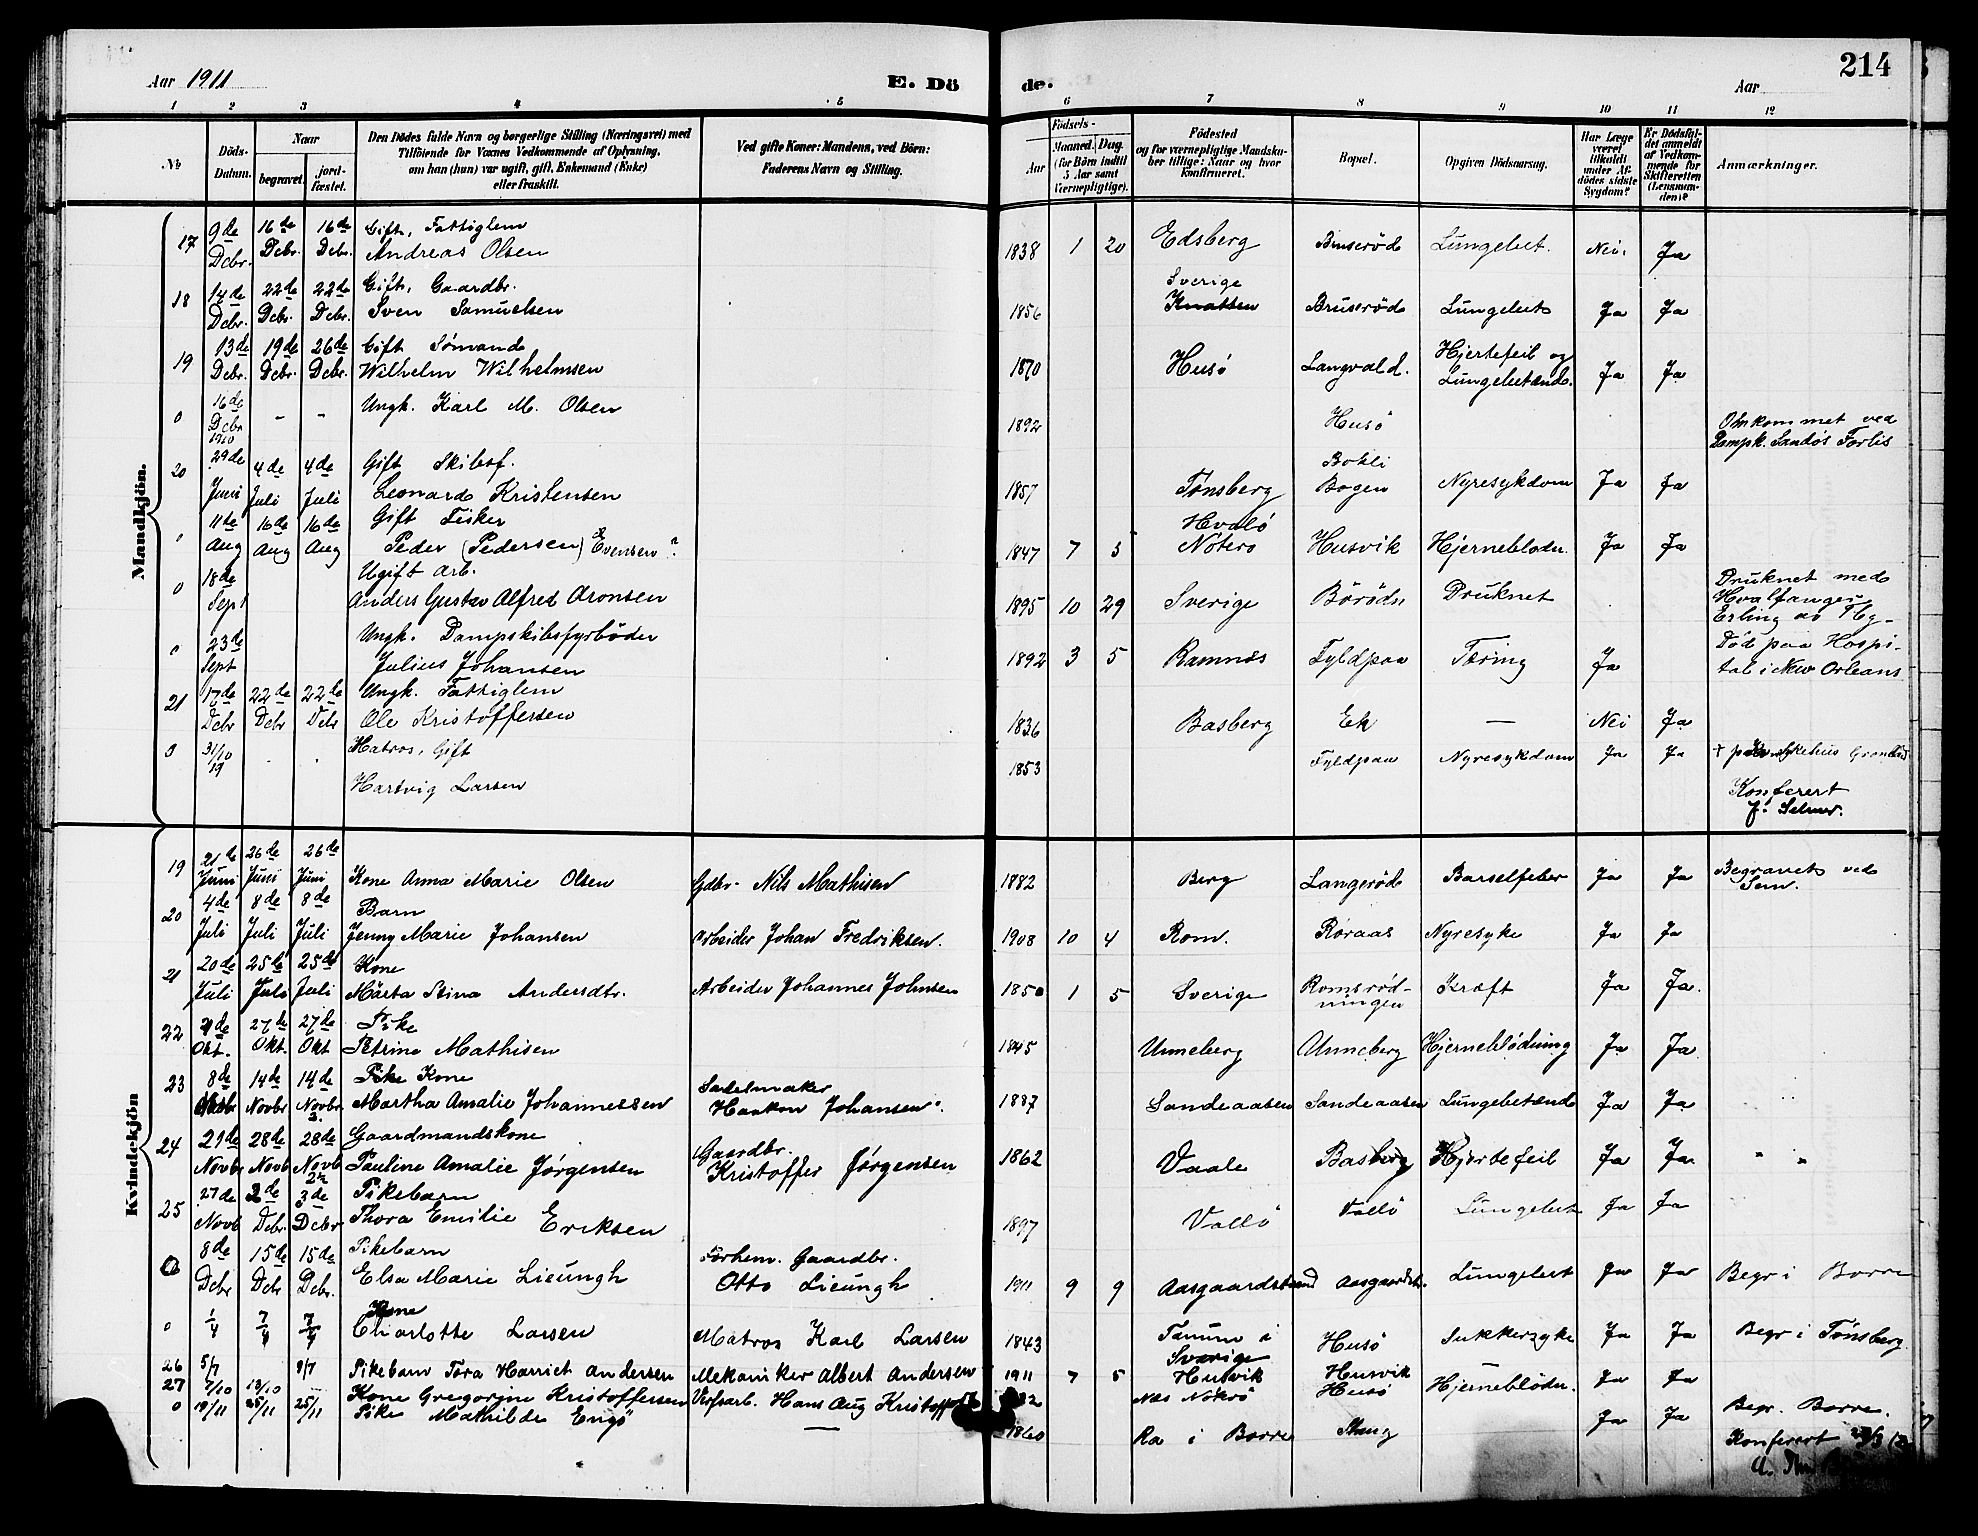 Aar 1911
E. Dö
de.
Aar
214
1 2 3 4 5 6 7 8 9 10 11 12
No
Döds-
Datum.
Naar
begravet.
jord-
fæstet.
Den Dödes fulde Navn og borgerlige Stilling (Næringsvei) med
Tilföiende for Voxnes Vedkommende af Oplysning,
om han (hun) var ugift, gift, Enkemand (Enke)
eller fraskilt.
Ved gifte Koner: Mandens, ved Börn:
Faderens Navn og Stilling.
Födsels-
Aar
Maaned. Dag.
(for Börn indtil
5 Aar samt
Værnepligtige).
Födested
og for værnepligtige Mandska-
ber tillige: Naar og hvor
konfirmeret.
Bopæl.
Opgiven Dödsaarsag.
Har Læge
været
tilkaldt
under Af-
dödes sidste
Sygdom?
Er Dödsfal-
det anmeldt
af Vedkom-
mende for
Skifteretten
(Lensman-
den)?
Anmærkninger.
Mandkjön.
17 9de Dcbr. 16de Dcbr. 16de Dcbr. Gift, Fattiglem
Andreas Olsen 1838 1 20 Edsberg Bruseröd Lungebet. Nei. Ja
18 14de Dcbr. 22de Dcbr. 22de Dcbr. Gift, Gaardbr.
Sven Samuelsen 1856 Sverige Knatten Bruseröd Lungebet Ja Ja
19 13de Dcbr. 19de Dcbr. 26de Dcbr. Gift Sömand
Wilhelm Wilhelmsen 1870 Husö Langvald. Hjertefeil og
Lungebetænd. Ja Ja
0 16de Dcbr 1910 - - Ungk. Karl M. Olsen 1892 Husö Omkommet ved
Dampk. Sandös Forlis
20 29de Juni 4de Juli 4de Juli Gift Skibsf.
Leonard Kristensen 1857 Tønsberg Bogen Nyresykdom Ja Ja
11de Aug 16de Aug 16de Aug Gift Fisker
Peder (Pedersen) Evensen? 1847 7 3 Hvalö
Nøterø Husvik Hjerneblødn. Ja Ja
0 18de Sept Ugift arb.
Anders Gustav Alfred Aronsen 1895 10 29 Sverige Druknet Druknet med
Hvalfanger
Erling av Tbg-
0 23de Sept Ungk. Dampskibsfyrbøder
Julius Johansen 1892 3 5 Ramnæs Fyldpaa Tæring Ja Død paa Hospi-
tal i New Orleans
21 17de Dcbr 22de Dcbr 22de Dcbr Ungk. Fattiglem
Ole Kristoffersen 1836 Basberg Ek — Nei Ja
0 31/10 Matros, Gift
Hartvig Larsen 1853 Fyldpaa Nyresykdom Ja Ja
Konferert
Kvindekjön
19 21de Juni 26de Juni 26de Juni Kone Anna Marie Olsen Gdbr. Nils Mathisen 1882 Berg Langerød Barselfeber Ja Ja Begravet ved
Sem.
20 4de Juli 8de Juli 8de Juli Barn
Jenny Marie Johansen Arbeider Johan Fredriksen. 1908 10 4 Rom. Røraas Nyresyke Ja Ja
21 20de Juli 25de Juli 25de Juli Kone
Märta Stina Andersdtr. Arbeider Johannes Johnsen 1850 1 5 Sverige Romsrød-
ningen Kræft Ja Ja.
22 21de Okt. 27de Okt. 27de Okt Pike
Petrine Mathisen 1845 Unneberg Unneberg Hjerneblödning Ja Ja
23 8de Novbr 14de Novbr 14de Novbr. Pike Kone
Martha Amalie Johannessen Sadelmaker
Haakon Johansen. 1887 Sandeaasen Sandeaasen Lungebetænd Ja Ja
24 21de Novbr 28de Novb 28de Novb Gaardmandskone
Pauline Amalie Jørgensen Gaardbr.
Kristoffer Jørgensen 1862 Vaale Basberg Hjertefeil Ja Ja
25 27de Novb 2de Dcbr. 3de Dcbr Pikebarn
Thora Emilie Eriksen 1897 Vallö Vallö Lungebet Ja Ja
0 8de Dcbr 15de Dcbr 15de Dcbr. Pikebarn
Elsa Marie Lieungh Forhem. Gaardbr.
Otto Lieungh 1911 9 9 Aasgaardstrand Aasgaardstr. Lungebet Ja Ja Begr i Borre
0 1/4 7/4 7/4 Kone
Charlotte Larsen Matros Karl Larsen 1843 Tanum i
Sverige Husö Sukkersyke Ja Ja Begr i Tønsberg
26 5/7 9/7 Pikebarn Tora Harriet Andersen Mekaniker Albert Andersen 1911 7 5 Husvik Husvik
27 7/10 12/10 Kone Gregorine Kristoffersen Verfsarb. Hans Aug Kristoffersen Næs Nøterö Husö Hjerneblödn. Ja Ja
0 19/11 25/11 25/11 Pike Mathilde Engö — 1860 Ra i Borre Stang Ja Ja Begr. Borre.
Konferert